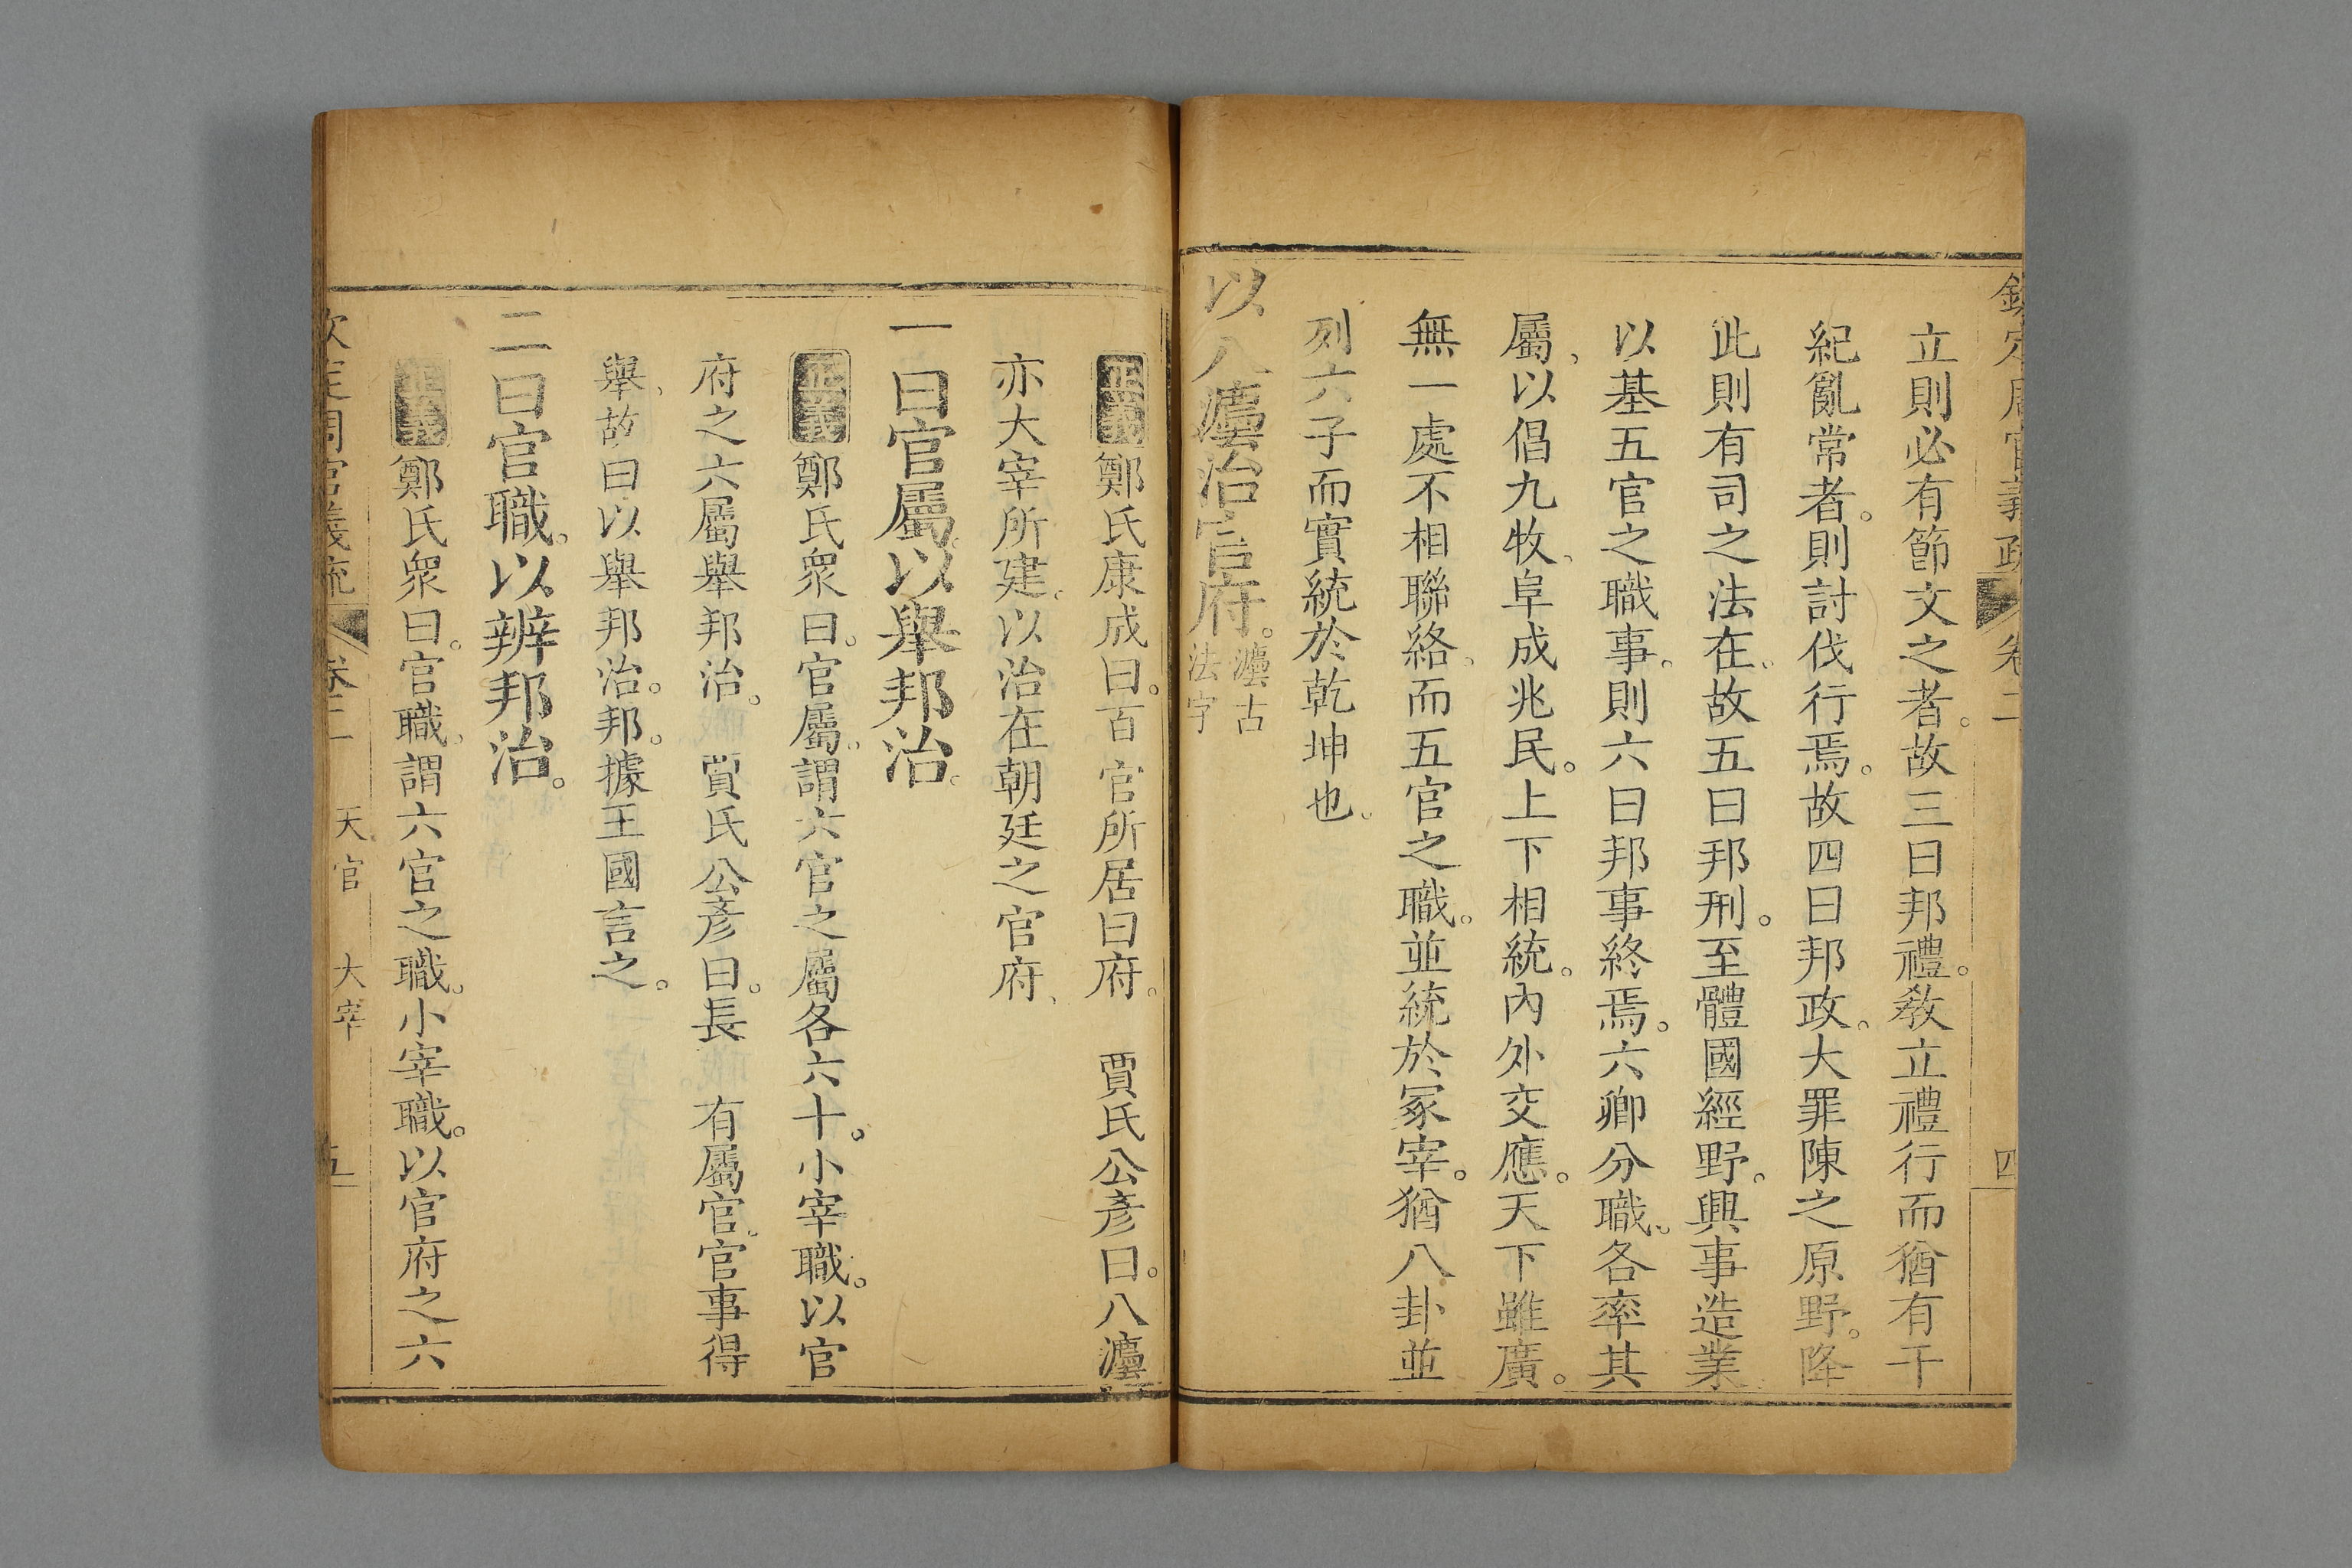 欽定周官義疏 卷二 四
立則必有節文之者。故三曰邦禮。敎立禮行而猶有干
紀亂常者。則討伐行焉。故四曰邦政。大罪陳之原野。降
此則有司之法在。故五曰邦刑。至體國經野。興事造業
以基五官之職事。則六曰邦事終焉。六卿分職。各率其
屬、以倡九牧、阜成兆民。上下相統。內外交應。天下雖廣。
無一處不相聯絡。而五官之職。並統於冢宰。猶八卦並
列六子而實統於乾坤也。
以八灋治官府。灋古法字
正義鄭氏康成曰。百官所居曰府。 賈氏公彥曰。八灋
亦大宰所建。以治在朝廷之官府、
一曰官屬。以舉邦治。
正義鄭氏衆曰。官屬。謂六官之屬各六十。小宰職。以官
府之六屬舉邦治。 賈氏公彥曰。長 有屬官。官事得
舉、故曰以舉邦治。邦。據王國言之。
二曰官職。以辨邦治。
正義鄭氏衆曰。官職。謂六官之職。小宰職。以官府之六
欽定周官義疏 卷二 天官 大宰 五